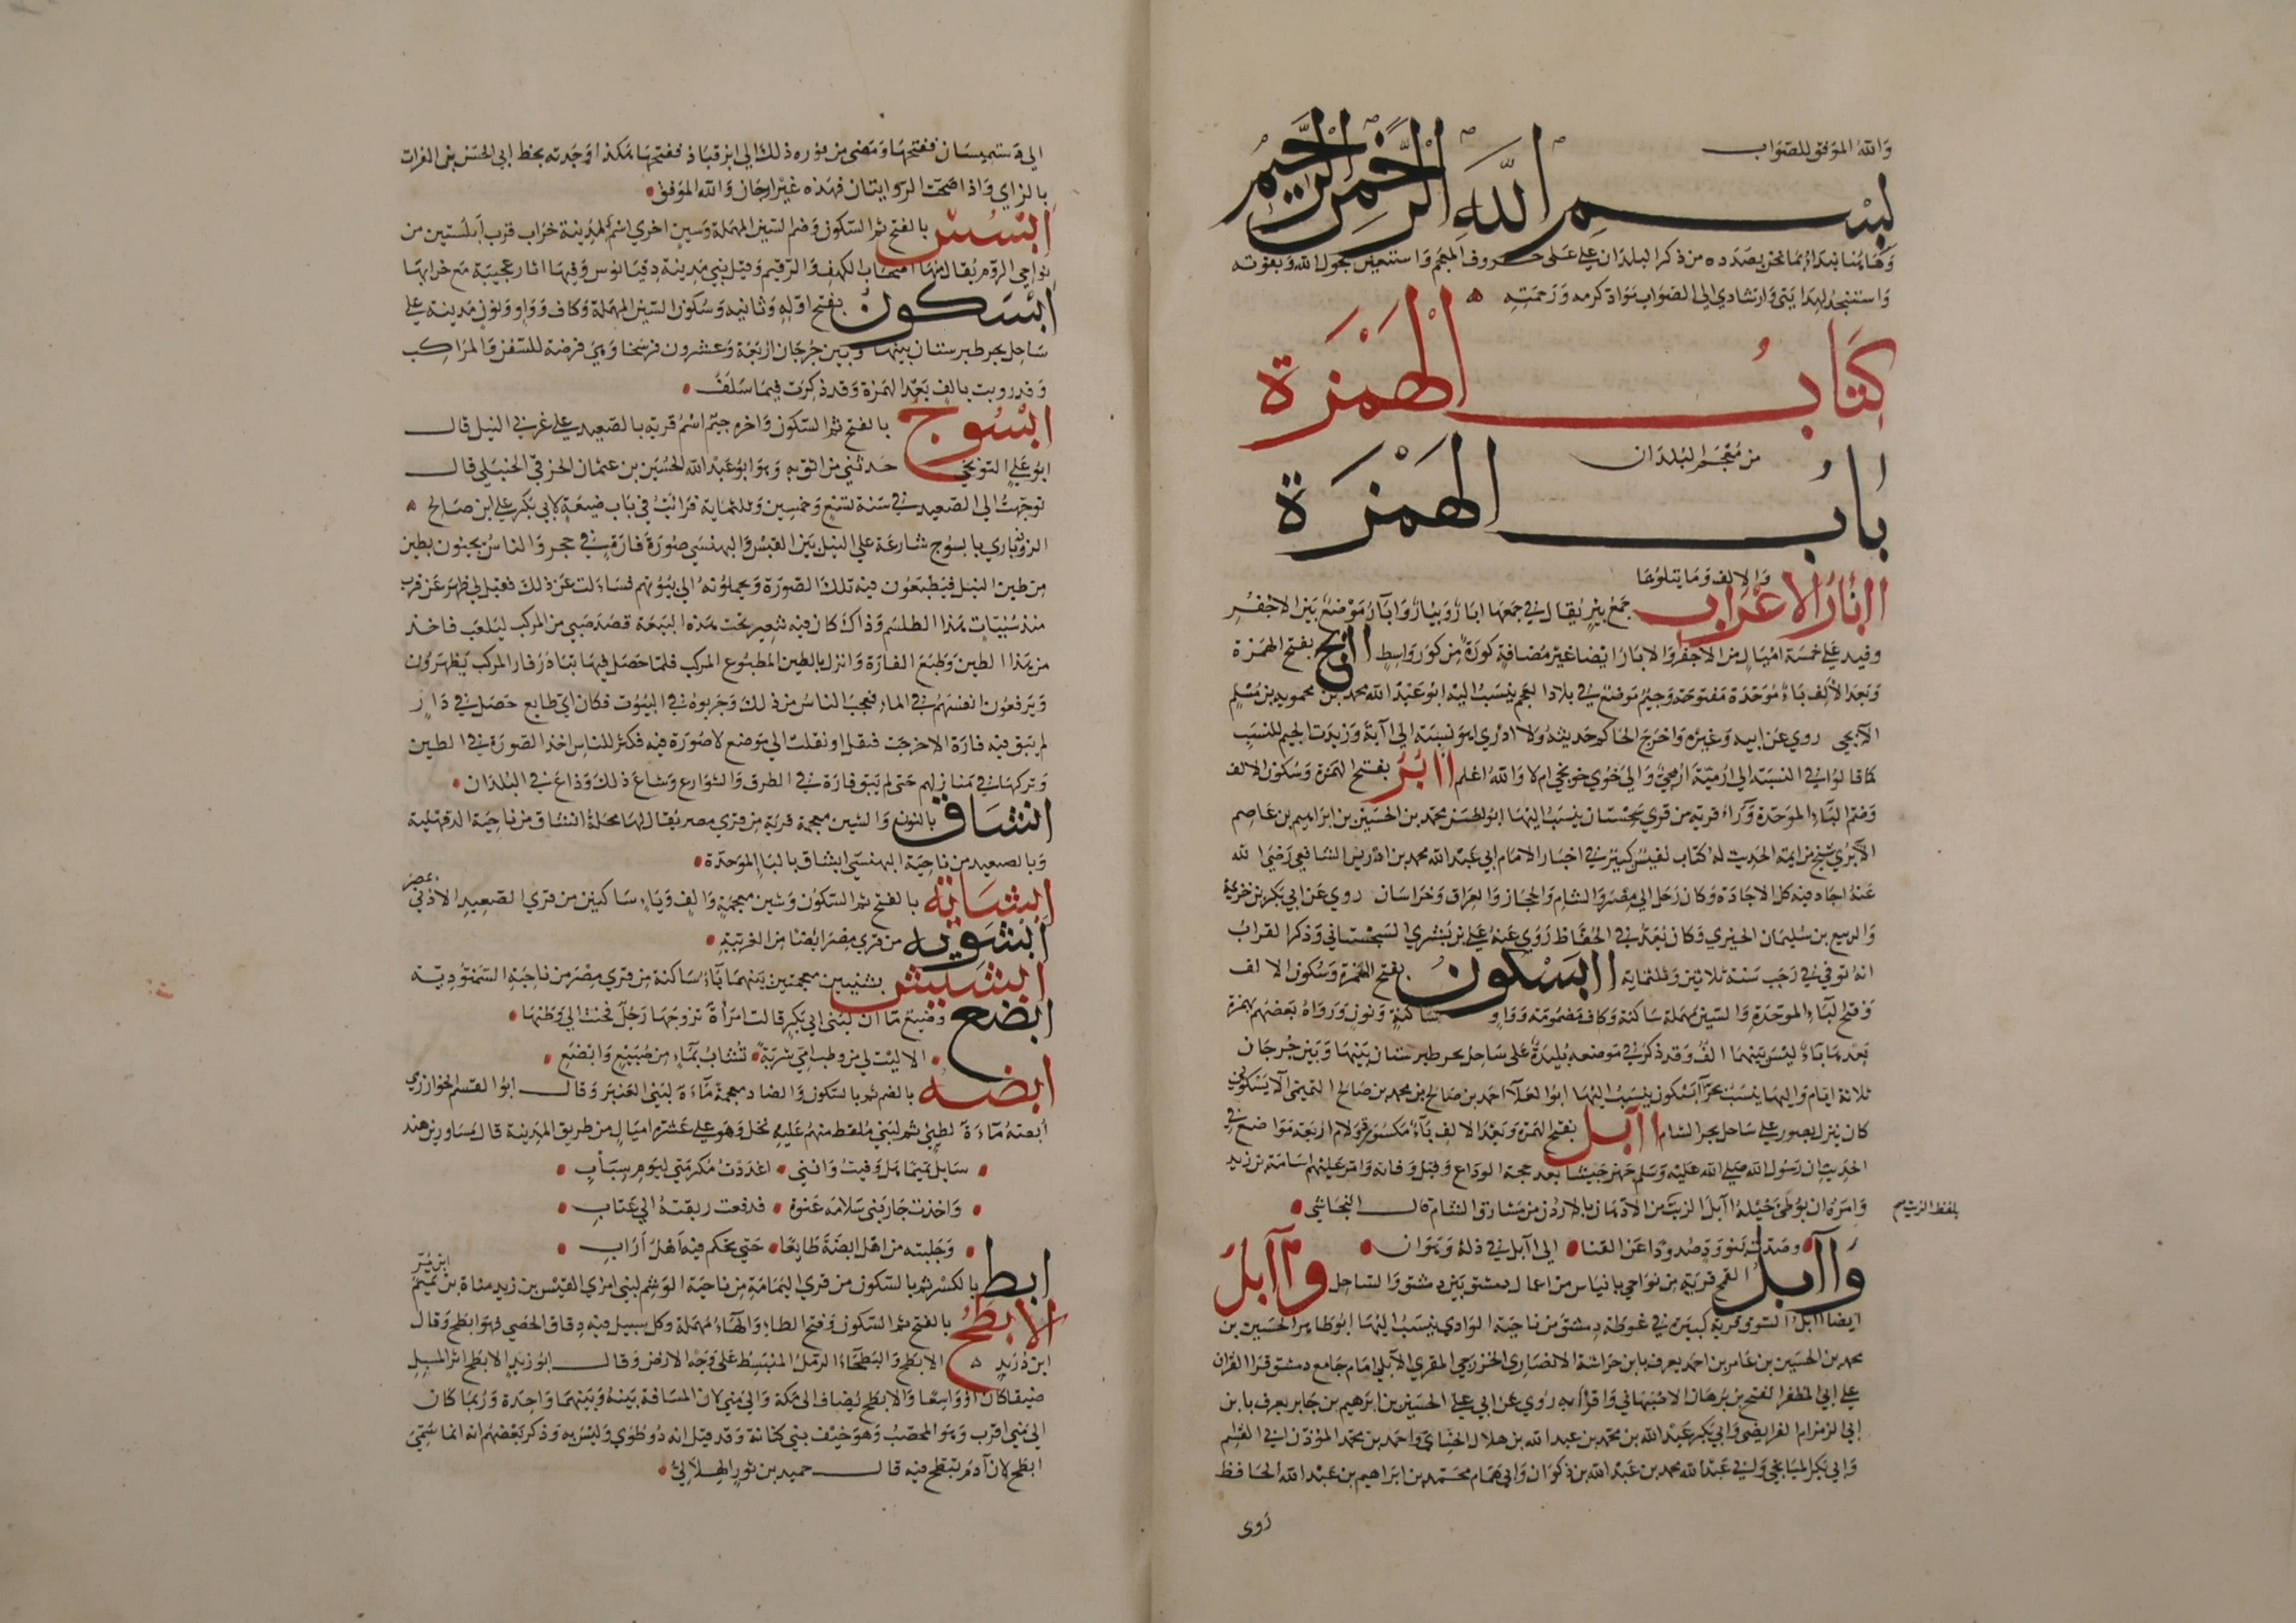 والله الموفق للصواب
بسم الله الرحمن الرحيم
وهاهنا نبدأ بما نحن بصدده من ذكر البلدان على حروف المعجم واستعين بحول الله وبقوته
واستنجد لهدايتي وارشادي الى الصواب مواد كرمه ورحمته
كتاب الهمزة
من معجم البلدان
باب الهمزة
والالف وما يتلوها
اابار الاعراب جمع بير يقال في جمعها ابار وبيار واآبار موضع بين الاجفر
وفيد على خمسة اميال من الاجفر والابار ايضا غير مضافة كورة من كور واسط اابج بفتح الهمزة
وبعد الالف باء موحدة مفتوحة وجيم موضع في بلاد العجم ينسب اليه ابو عبد الله محمد بن محمويه بن مسلم
الآبجي روي عن ابيه وغيره واخرج الحاكم حديثه ولا ادري اهو نسبة الى آبة وزيدت الجيم للنسب
كما قالوا في النسبة الى ارمية ارمجي والى خوي خويجي ام لا والله اعلم اابر بفتح الهمزة وسكون الالف
وضم الباء الموحدة وراء قرية من قري سجستان ينسب اليها ابو الحسن محمد بن الحسين بن ابراهيم بن عاصم
الآبري شيخ من ايمة الحديث له كتاب نفيس كبير في اخبار الامام ابي عبد الله محمد بن ادريس الشافعي رضي الله
عنه اجاد فيه كل الاجادة وكان رحل الى مصر والشام والحجاز والعراق وخراسان روي عن ابي بكر بن خزيمة
والربيع بن سليمان الجيزي وكان يعد في الحفاظ روي عنه علي بن بشري السجستاني وذكر الفراب
انه توفي في رجب سنة ثلاثين وثلثماية اابسكون بفتح الهمزة وسكون الالف
وفتح الباء الموحدة والسين مهملة ساكنة وكاف مضمومة وواو ساكنة ونون ورواه بعضهم بهمزة
بعدها باء ليس بينهما الف وقد ذكر في موضعه بليدة على ساحل بحر طبرستان بينها وبين جرجان
ثلاثة ايام واليها ينسب بحر آبسكون ينسب اليها ابو العلاء احمد بن صالح بن محمد بن صالح التميمي الآبسكوني
كان ينزل بصور على ساحل بحر الشام اآبل بفتح الهمزة وبعد الالف باء مكسورة ولام اربعة مواضع في
الحديث ان رسول الله صلى الله عليه وسلم جهز جيشا بعد حجة الوداع وقبل وفاته وامر عليهم اسامة بن زيد
وامره ان يوطئ خيله اآبل الزيت من الاردن بمشارق الشام قال النجاشي
بلفظ الزيت
وصدت بنو ود صدودا عن القنا الى اآبل في ذلة وهوان
واآبل القمح قرية من نواحي بانياس من اعمال دمشق بين دمشق والساحل واآبل
ايضا اآبل السوق قرية كبيرة في غوطة دمشق من ناحية الوادي ينسب اليها ابو طاهر الحسين بن
محمد بن الحسين بن عامر بن احمد يعرف بابن خراشة الانصاري الخزرجي المقري الآبلي امام جامع دمشق قرا القران
على ابي المظفر الفتح بن برهان الاصبهاني واقرانه روي عن ابي علي الحسين بن ابرهيم بن جابر يعرف بابن
ابي الزمزام الفرايضي وابي بكر عبد الله بن محمد بن عبد الله بن هلال الحنائي واحمد بن محمد المؤذن ابي القسم
وابي بكر الميانجي وابي عبد الله محمد بن عبد الله بن ذكوان وابي همام محمد بن ابراهيم بن عبد الله الحافظ
روى
الى دستميسان ففتحها ومضي من فوره ذلك الى ابزقباذ ففتحها هكذا وجدته بخط ابي الحسن بن الفرات
بالزاي واذا صحت الروايتان فهذه غير ارجان والله الموفق
ابسس بالفتح ثم السكون وضم السين المهملة وسين اخري اسم لمدينة خراب قرب ابلستين من
نواحي الروم يقال منها اصحاب الكهف والرقيم وقيل هي مدينة دقيانوس وفيها اثار عجيبة مع خرابها
ابسكون بفتح اوله وثانيه وسكون السين المهملة وكاف وواو ونون مدينة على
ساحل بحر طبرستان بينها وبين جرجان اربعة وعشرون فرسخا وهي فرضة للسفن والمراكب
وقد رويت بالف بعد الهمزة وقد ذكرت فيما سلف
ابسوج بالفتح ثم السكون واخره جيم اسم قرية بالصعيد على غربي النيل قال
ابو علي التنوخي حدثني من اثق به وهو ابو عبد الله الحسين بن عثمان الخرقي الحنبلي قال
توجهت الى الصعيد في سنة تسع وخمسين وثلثماية فرايت في باب ضيعة لابي بكر علي ابن صالح
الروذباري بابسوج شارعة على النيل بين القيس والبهنسي صورة فارة في حجر والناس يجيئون بطين
من طين النيل فيطبعون فيه تلك الصورة ويحملونه الى بيوتهم فسالت عن ذلك فقيل لي ظهر عن قرب
منذ سنيات هذا الطلسم وذاك كان فيه شعير تحت هذه البيعة فقصد صبي من المركب ليلعب فاخذ
من هذا الطين وطبع الفارة وانزل بالطين المطبوع المركب فلما حصل فيها تبادر فار المركب يظهرون
ويرفعون انفسهم في الماء فعجب الناس من ذلك وجربوه في البيوت فكان اي طابع حصل في دار
لم يبق فيه فارة الا خرجت فتقتل او نقلت الى موضع لا صورة فيه فكثر للناس اخذ الصورة في الطين
وتركها في منازلهم حتى لم يبق فارة في الطرق والشوارع وشاع ذلك وذاع في البلدان
انشاق بالنون والشين معجمة قرية من قري مصر يقال لها محلة انشاق من ناحية الدقهلية
وبالصعيد من ناحية البهنسي ابشاق بالباء الموحدة
ابشاية بالفتح ثم السكون وشين معجمة والف وياء ساكنين من قري الصعيد الادنى بمصر
ابشويه من قري مصر ايضا من الغربية
ابشيش بشينين معجمتين بينهما ياء ساكنة من قري مصر من ناحية السمنودية
ابضع وضبيع ماآن لبني ابي بكر قالت امرأة تزوجها رجل فحنت الى وطنها
الا ليت لي من وطب امي شربة تشاب بماء من ضبيع وابضع
ابضة بالضم ثم بالسكون والضاد معجمة ماءة لبني العنبر وقال ابو القسم الخوارزمي
ابضة ماءة لطيئ ثم لبني ملقط منهم عليه نخل وهو على عشرة اميال من طريق المدينة قال مساور بن هند
سايل تميما هل وفيت وانني اعددت مكرمتي ليوم سباب
واخذت جار بني سلامة عنوة فدفعت ربقته الى عتاب
وجلبته من اهل ابضة طايعا حتى يحكم فيه اهل اراب
ابط بالكسر ثم بالسكون من قري اليمامة من ناحية الوشم لبني امرئ القيس بن زيد مناة بن تميم
الابطح بالفتح ثم السكون وفتح الطاء والحاء مهملة وكل مسيل فيه دقاق الحصي فهو ابطح وقال
ابن دريد الابطح والبطحاء الرمل المنبسط على وجه الارض وقال ابو زيد الابطح اثر المسيل
ضيقا كان او واسعا والابطح يضاف الى مكة والى مني لان المسافة بينه وبينهما واحدة وربما كان
الى مني اقرب وهو المحصب وهو خيف بني كنانة وقد قيل انه ذو طوي وليس به وذكر بعضهم انه انما سمي
ابطح لان آدم بطح فيه قال حميد بن ثور الهلالي